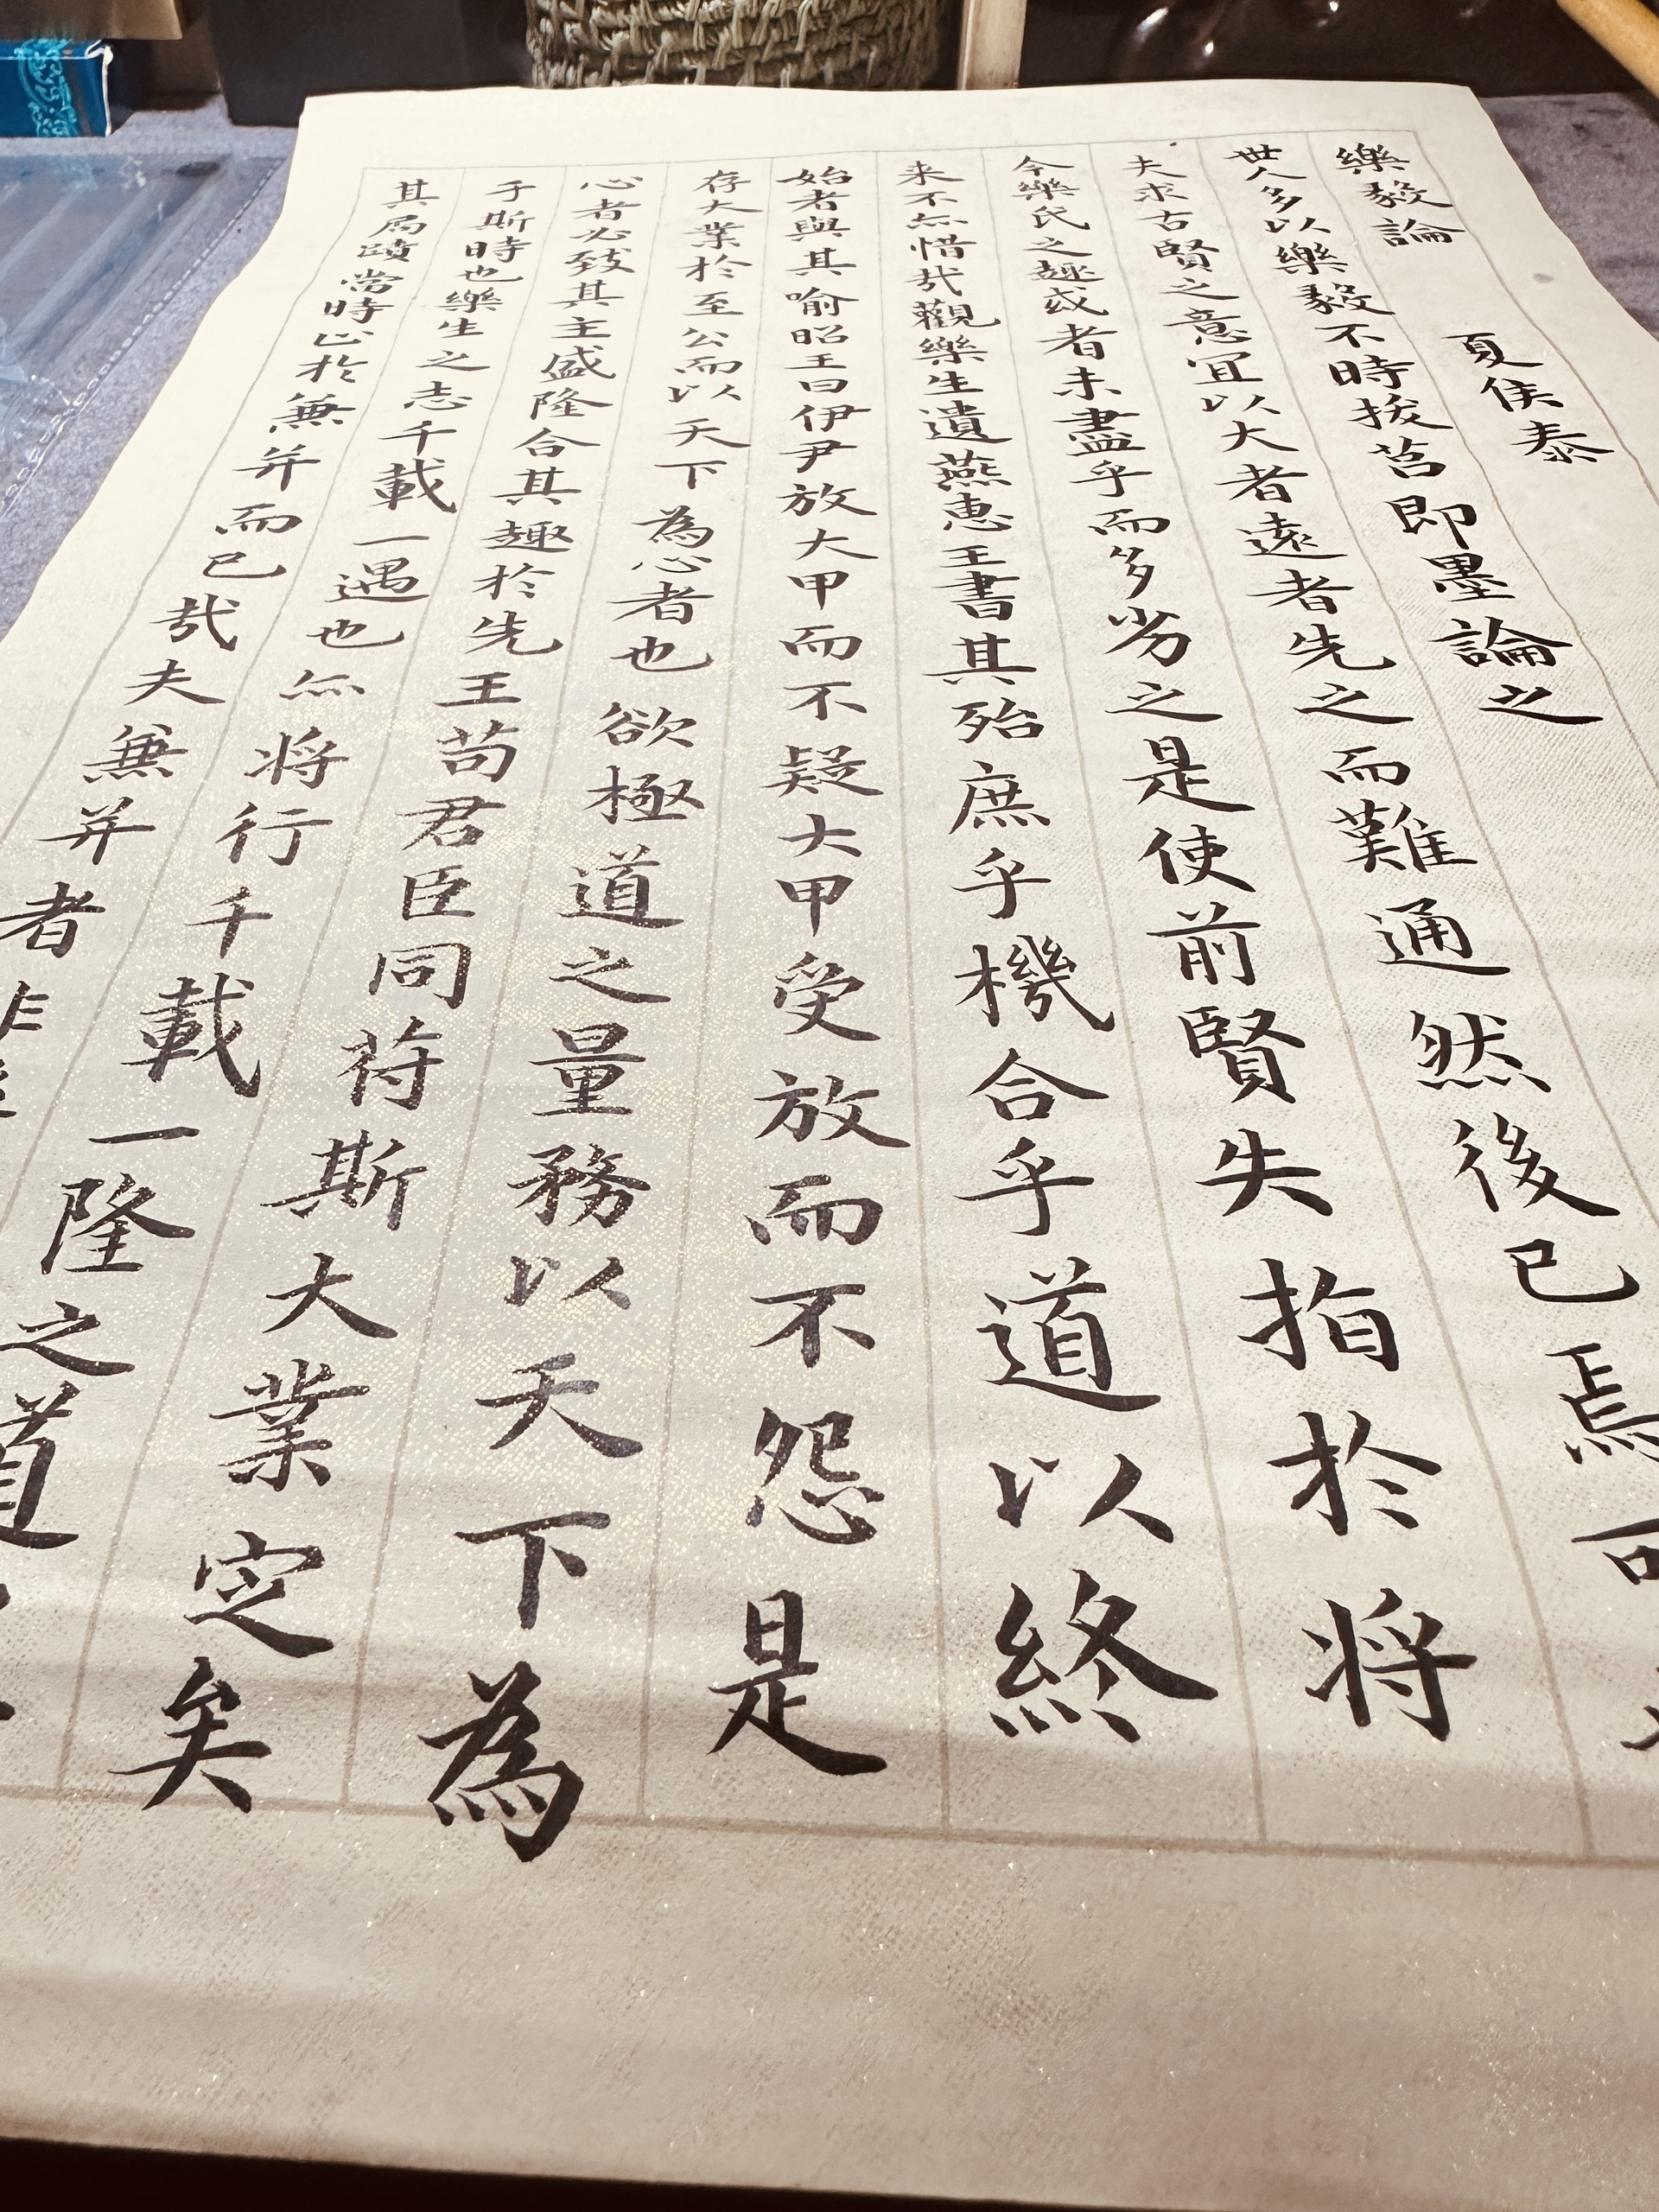 樂毅論 夏侯泰
世人多以樂毅不時拔莒即墨論之
夫求古賢之意宜以大者遠者先之而難通然後已焉可
今樂氏之趣或者未盡乎而多劣之是使前賢失指於将
来不亦惜哉觀樂生遺燕惠王書其殆庶乎機合乎道以終
始者與其喻昭王曰伊尹放大甲而不疑大甲受放而不怨是
存大業於至公而以天下為心者也欲極道之量務以天下為
心者必致其主盛隆合其趣於先王苟君臣同苻斯大業定矣
于斯時也樂生之志千載一遇也亦将行千載一隆之道
其局蹟當時止於兼并而已哉夫兼并者非